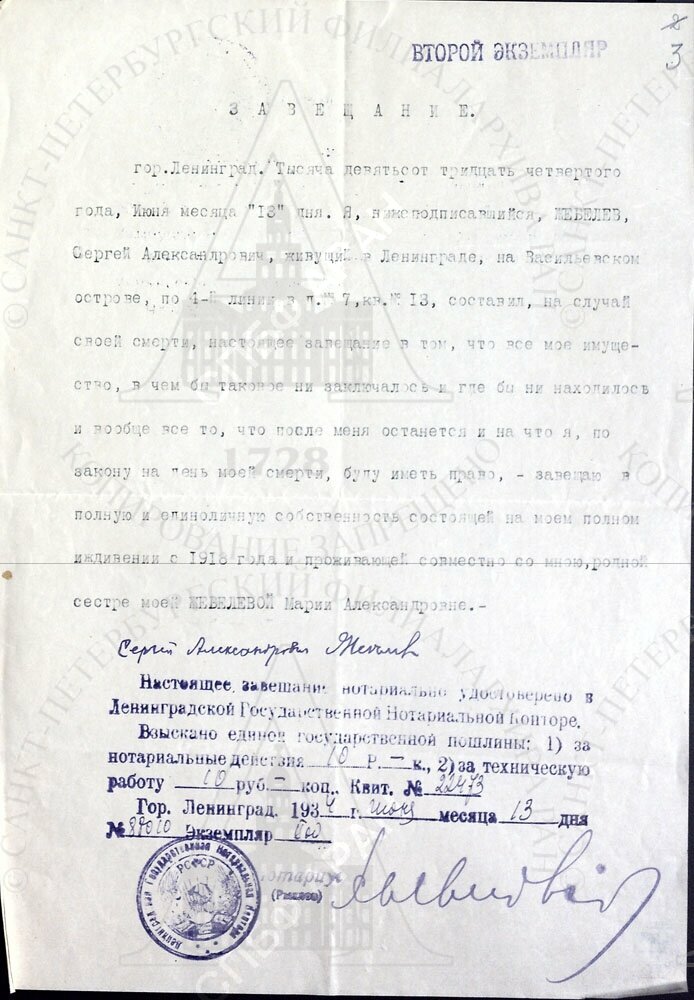 2
3
ВТОРОЙ ЭКЗЕМПЛЯР
ЗАВЕЩАНИЕ.
гор.Ленинград. Тысяча девятьсот тридцать четвертого
года, Июня месяца "13" дня. Я, нижеподписавшийся, ЖЕБЕЛЕВ,
Сергей Александрович, живущий в Ленинграде, на Васильевском
острове, по 4-й линии в д.№ 7,кв.№ 13, составил, на случай
своей смерти, настоящее завещание в том, что все мое имуще-
ство, в чем бы таковое ни заключалось и где бы ни находилось
и вообще все то, что после меня останется и на что я, по
закону на день моей смерти, буду иметь право, - завещаю в
полную и единоличную собственность состоящей на моем полном
иждивении с 1918 года и проживающей совместно со мною,родной
сестре моей ЖЕБЕЛЕВОЙ Марии Александровне.-
Сергей Александрович Жебелев
Настоящее завещание нотариально удостоверено в
Ленинградской Государственной Нотариальной Конторе.
Взыскано единой государственной пошлины: 1) за
нотариальные действия 10 р. — к., 2) за техническую
работу 10 руб. — коп., Квит. № 22473
Гор. Ленинград. 1934 г. июня месяца 13 дня
№ Экземпляр
Нотариус
Ленинградская Государственная Нотариальная Контора
РСФСР
© САНКТ-ПЕТЕРБУРГСКИЙ ФИЛИАЛ АРХИВА РАН
СПБФ АРАН
1728
КОПИРОВАНИЕ ЗАПРЕЩЕНО